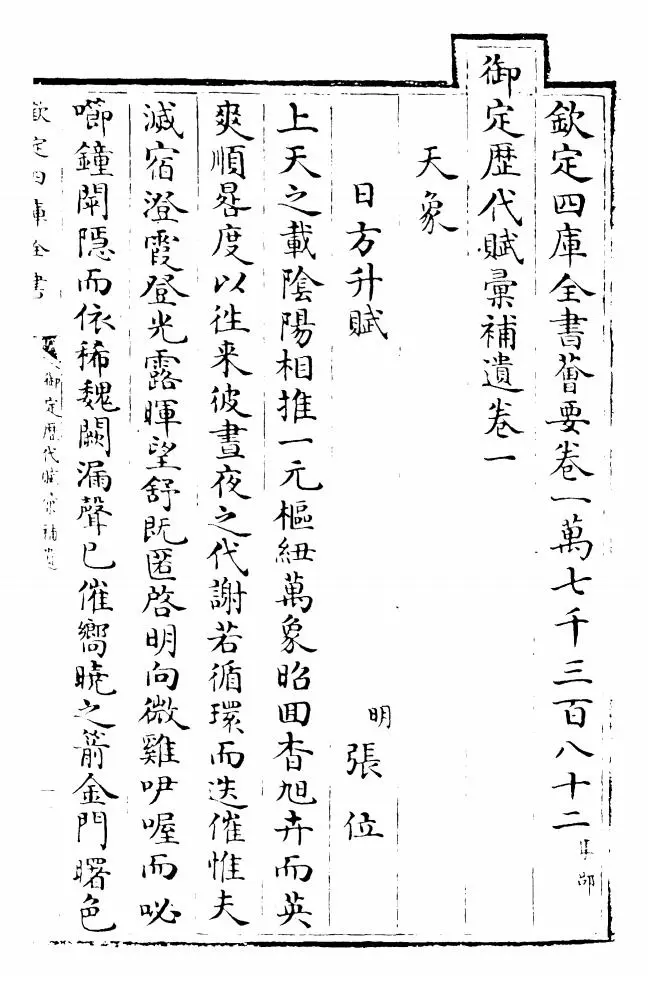 欽定四庫全書薈要卷一萬七千三百八十二 集部
御定歷代賦彙補遺卷一
天象
日方升賦 明 張位
上天之載陰陽相推一元樞紐萬象昭囬杳旭卉而英
爽順晷度以徃来彼晝夜之代謝若循環而迭催惟夫
減宿澄霞登光露暉望舒既匿啓明向微雞咿喔而呖
嘟鐘闐隱而依稀魏闕漏聲已催嚮曉之箭金門曙色
欽定四庫全書
御定歷代賦彙補遺